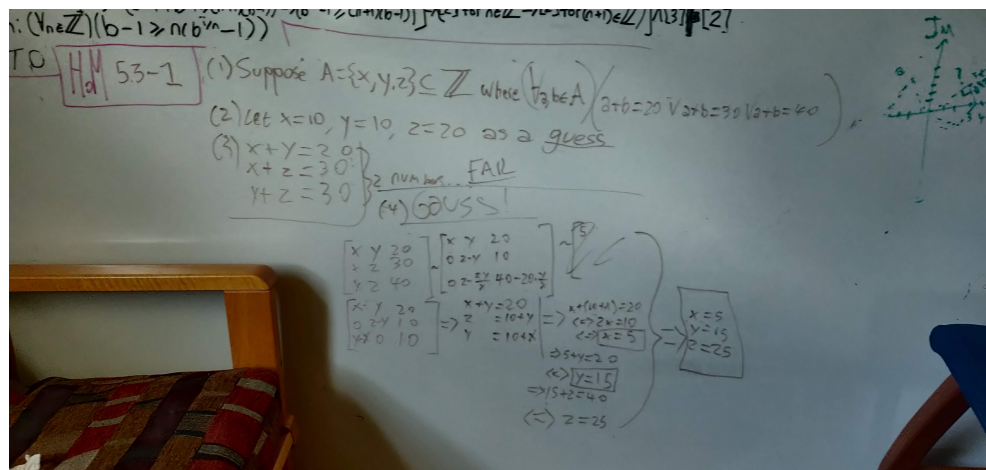 n: (∀n∈ℤ)(b-1≥n(b^1/n-1))
[2]
TO
HoM 53-1
(1) Suppose A={x,y,z}⊆ℤ where (∀a,b∈A)(a+b=20 ∨ a+b=30 ∨ a+b=40)
(2) Let x=10, y=10, z=20 as a guess
(3) x+y=20
x+z=30
y+z=30
2 numbers.. FAIL
(4) GAUSS!
[x y 20
x z 30
y z 40]
~
[x y 20
0 z-y 10
~ [5
[x y 20
0 z-y 10
y-x 0 10]
=> x+y=20
z =10+y
y =10+x
=> x+(10+x)=20
<=> 2x=10
<=> x=5
=> 5+y=20
<=> y=15
=> 15+z=40
<=> z=25
=>
x=5
y=15
z=25
Im